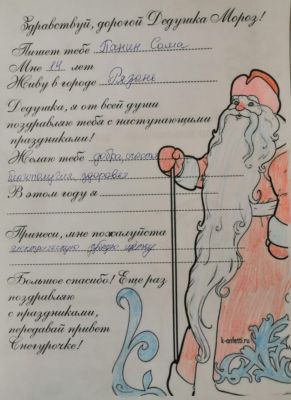 Здравствуй, дорогой Дедушка Мороз!
Пишет тебе Панин Сама
Мне 14 лет
Живу в городе Рязань
Дедушка, я от всей души
поздравляю тебя с наступающими
праздниками!
Желаю тебе добра, счастья
благополучия, здоровье
В этом году я
Приноси, мне пожалуйста
электрическую
Большое спасибо! Еще раз
поздравляю
с праздниками,
передавай привет
Снегурочке!
k-onfetti.ru